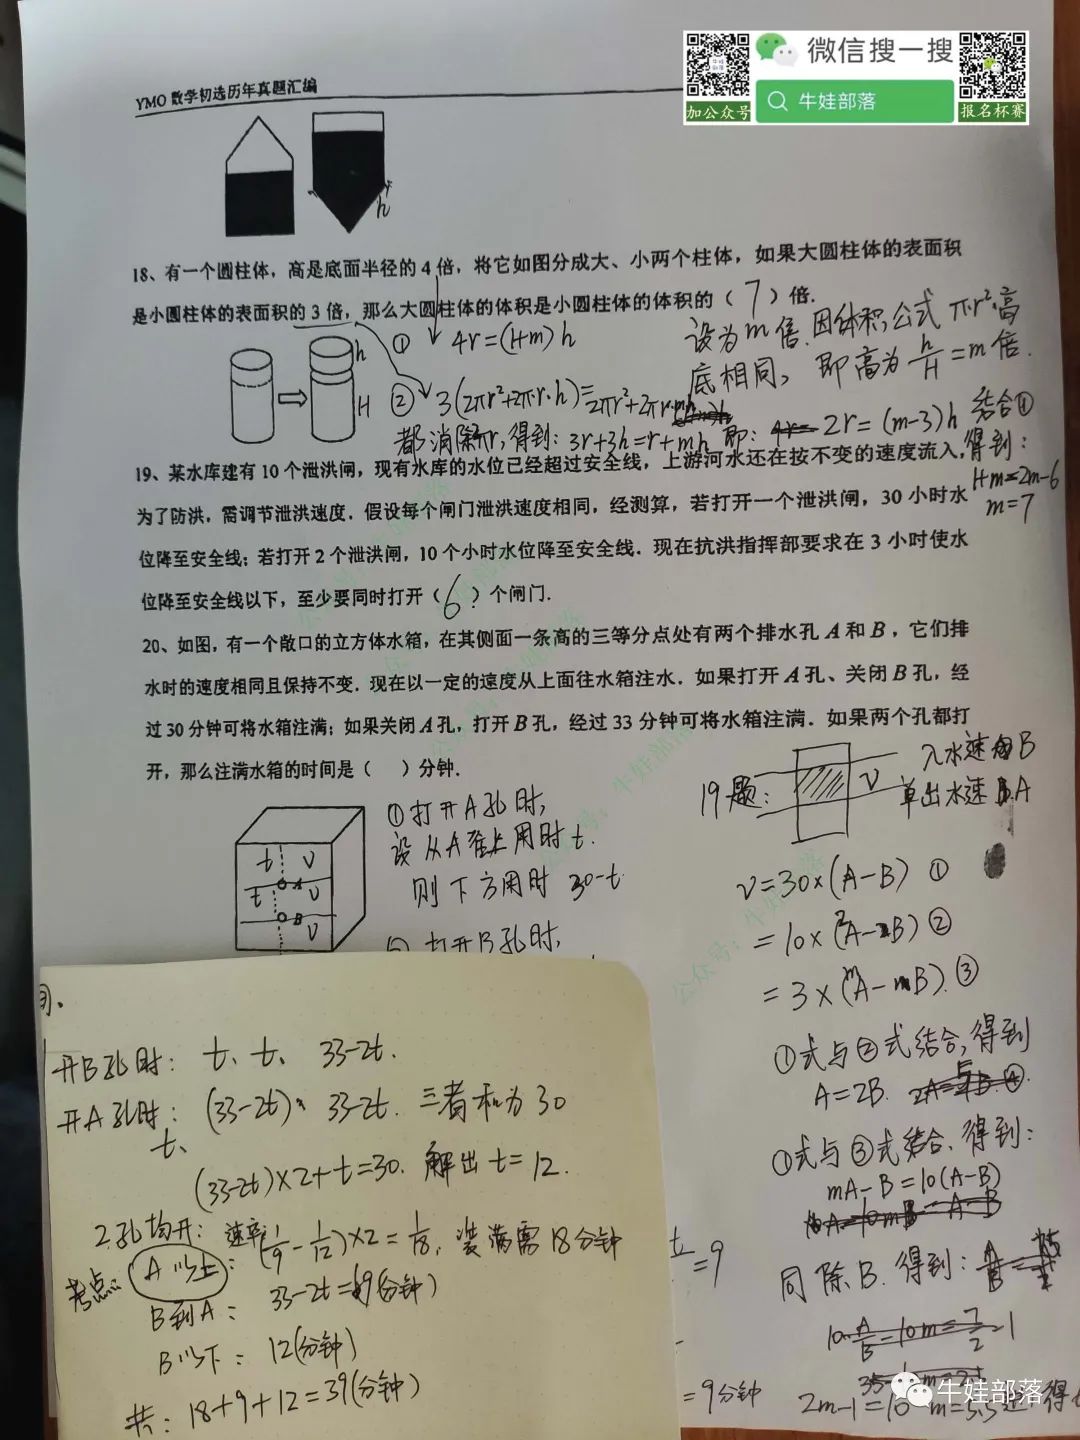 微信搜一搜
牛娃部落
加公众号
报名杯赛
YMO 数学初选历年真题汇编
h
18、有一个圆柱体，高是底面半径的 4 倍，将它如图分成大、小两个柱体，如果大圆柱体的表面积
是小圆柱体的表面积的 3 倍，那么大圆柱体的体积是小圆柱体的体积的（ 7 ）倍.
设为 m 倍. 因体积公式 πr²·高
底相同，即高为 h/H = m 倍.
① 4r=(1+m)h
h
H
② 3(2πr²+2π·r·h)=2πr²+2πr·mh
都消除πr, 得到: 3r+3h=r+mh 即: 2r=(m-3)h 结合①
得到:
1+m=2m-6
m=7
19、某水库建有 10 个泄洪闸，现有水库的水位已经超过安全线，上游河水还在按不变的速度流入，
为了防洪，需调节泄洪速度．假设每个闸门泄洪速度相同，经测算，若打开一个泄洪闸，30 小时水
位降至安全线；若打开 2 个泄洪闸，10 个小时水位降至安全线．现在抗洪指挥部要求在 3 小时使水
位降至安全线以下，至少要同时打开（ 6 ？）个闸门．
20、如图，有一个敞口的立方体水箱，在其侧面一条高的三等分点处有两个排水孔 A 和 B，它们排
水时的速度相同且保持不变．现在以一定的速度从上面往水箱注水．如果打开 A 孔、关闭 B 孔，经
过 30 分钟可将水箱注满；如果关闭 A 孔，打开 B 孔，经过 33 分钟可将水箱注满．如果两个孔都打
开，那么注满水箱的时间是（ ）分钟．
t V
A
t V
B
V
①打开A孔时,
设从A往上用时 t.
则下方用时 30-t
② 打开B孔时,
19题:
V
入水速 B
单出水速 A
V=30×(A-B) ①
=10×(2A-B) ②
=3×(mA-B) ③
①式与②式结合, 得到
A=2B.
①式与③式结合, 得到:
mA-B=10(A-B)
同除B. 得到:
2m-1=10 m=5.5
开B孔时: t、t、33-2t.
开A孔时: (33-2t)、33-2t. 三者和为30
t、
(33-2t)×2+t=30. 解出 t=12.
2孔均开: 速率(1/9-1/12)×2=1/18, 装满需18分钟
考点: A以上:
B到A: 33-2t=9(分钟)
B以下: 12(分钟)
共: 18+9+12=39(分钟)
=9
=9分钟
牛娃部落